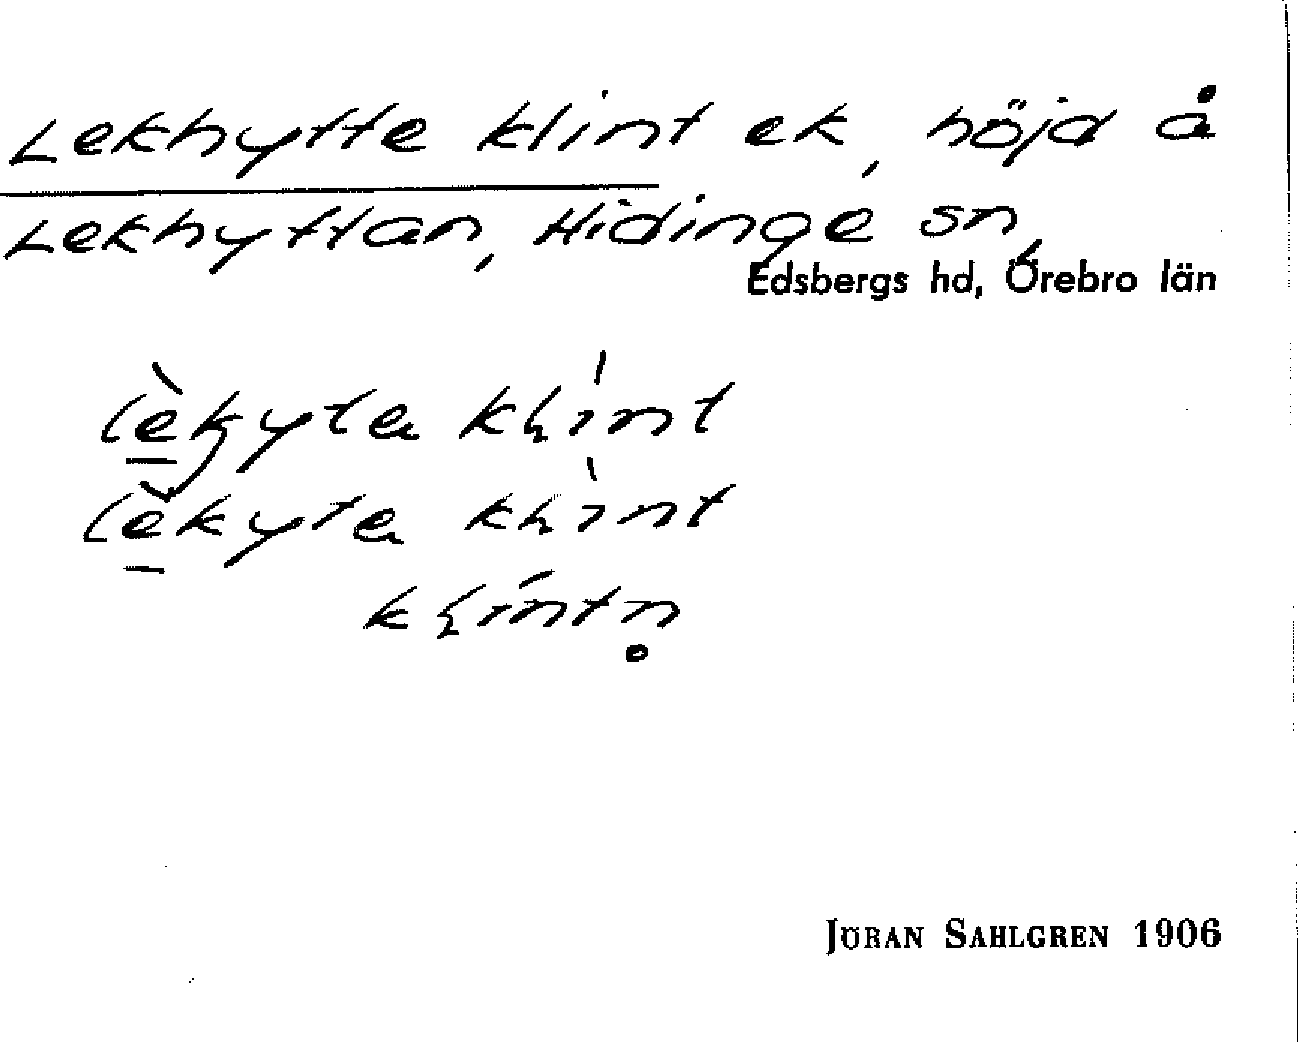 Lekhytte klint ek, höjd å
Lekhyttan, Hidinge sn,
Edsbergs hd, Örebro län
lèkyta kłint
lèkyta kłint
kłintn̥
JÖRAN SAHLGREN 1906